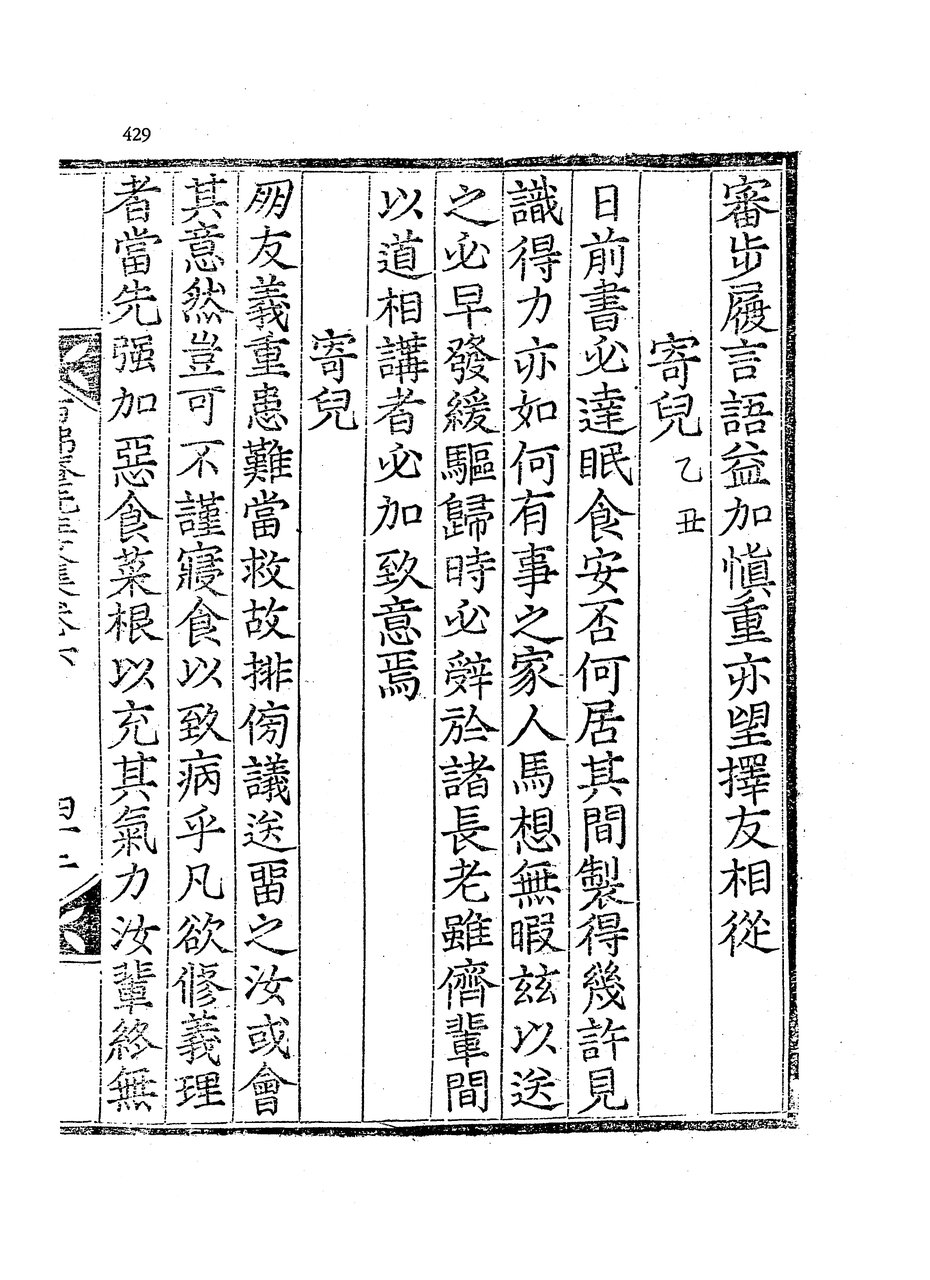 429
審步履言語益加愼重亦望擇友相從
寄兒 乙丑
日前書必達眠食安否何居其間製得幾許見
識得力亦如何有事之家人馬想無暇玆以送
之必早發緩驅歸時必辭於諸長老雖儕輩間
以道相講者必加致意焉
寄兒
朋友義重患難當救故排傍議送畱之汝或會
其意然豈可不謹寢食以致病乎凡欲修義理
者當先强加惡食菜根以充其氣力汝輩終無